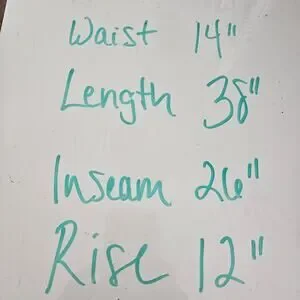 Waist 14"
Length 38"
Inseam 26"
Rise 12"